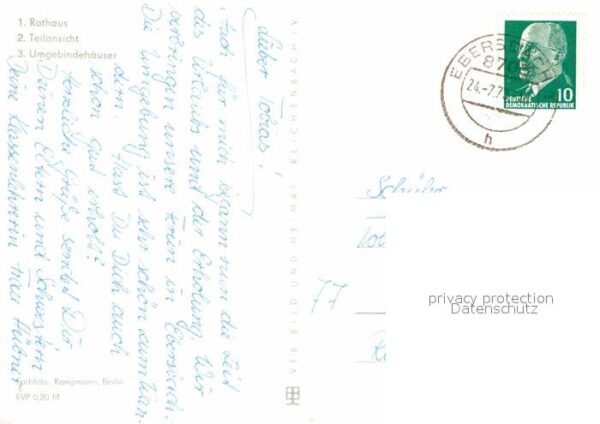 1. Rathaus
2. Teilansicht
3. Umgebindehäuser
Lieber Tobias!
Auch für mich begann nun die Zeit
des Urlaubs und der Erholung. Wir
verbringen unsere Ferien in Ebersbach.
Die Umgebung ist sehr schön zum Wan-
dern. Hast Du Dich auch
schon gut erholt?
Herzliche Grüße sendet Dir
Deinen Eltern und Schwestern
Deine Klassenlehrerin Frau Hübner
Farbfoto: Kampmann, Berlin
EVP 0,20 M
VEB BILD UND HEIMAT REICHENBACH I. V.
EBERSBACH
24.-7.7
h
DEUTSCHE
DEMOKRATISCHE REPUBLIK
10
Schüler
77
privacy protection
Datenschutz